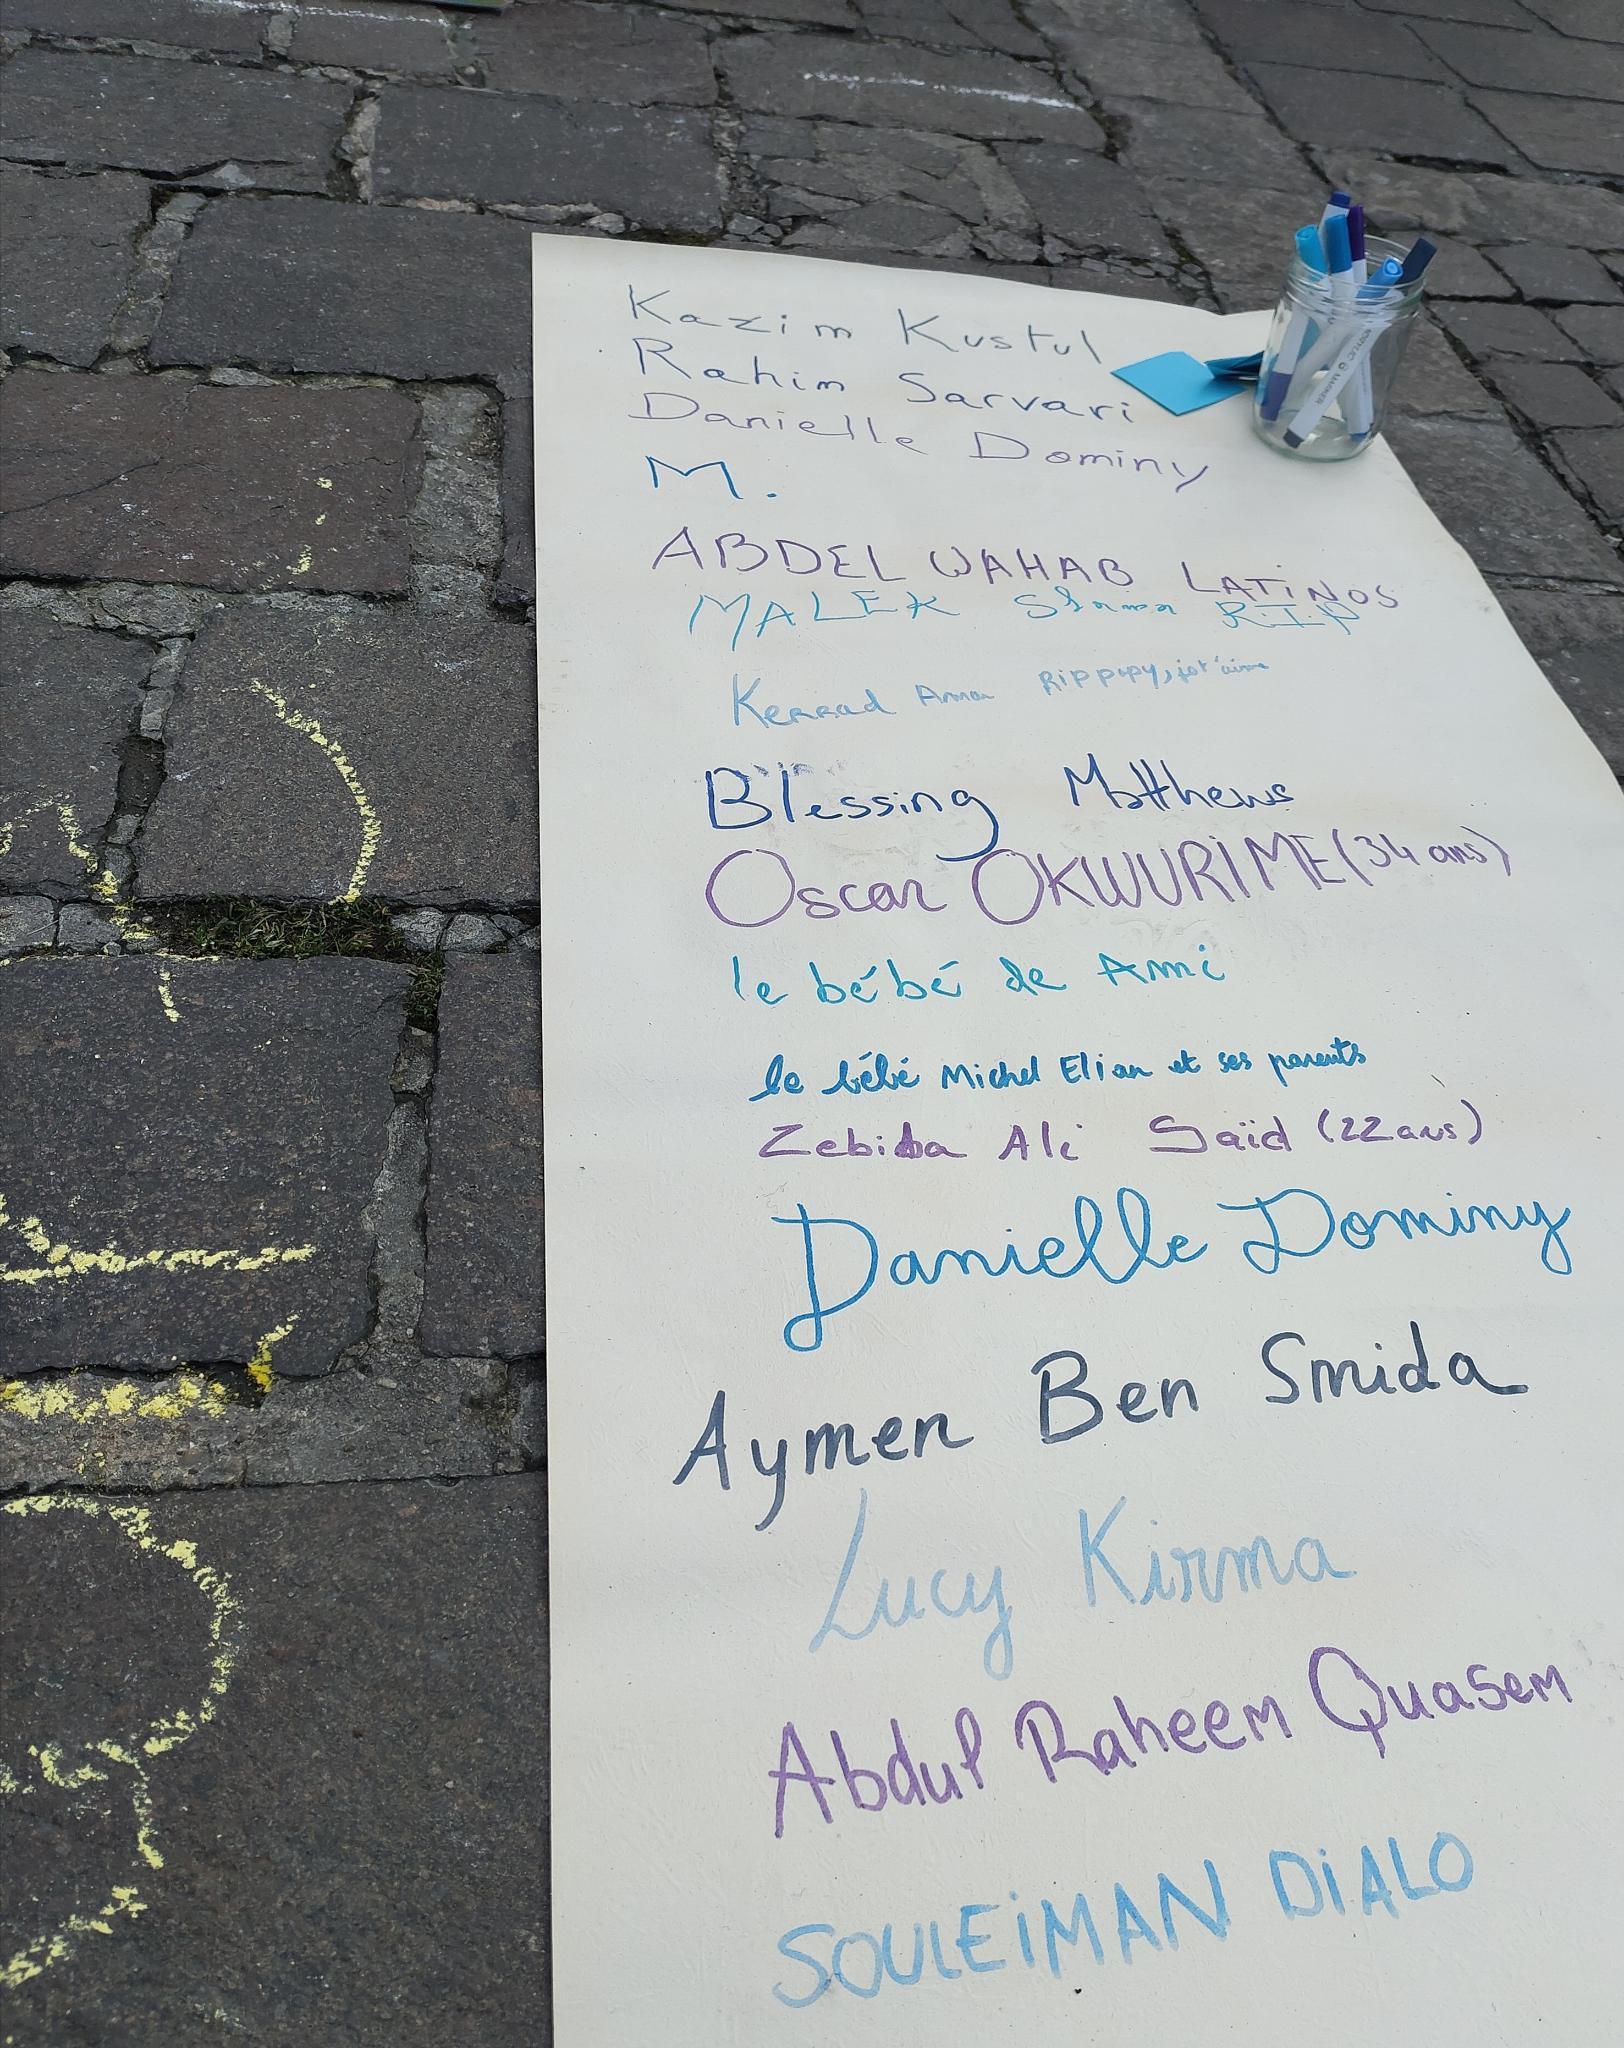 Kazim Kustul
Rahim Sarvari
Danielle Dominy
M.
ABDEL WAHAB LATINOS
MALEK R.I.P
Kerrad Amar Rip papy, je t'aime
Blessing Matthews
Oscar OKWURIME (34 ans)
le bébé de Ami
le bébé Michel Elian et ses parents
Zebiba Ali Saïd (22 ans)
Danielle Dominy
Aymen Ben Smida
Lucy Kirma
Abdul Raheem Quasem
SOULEiMAN DiALO